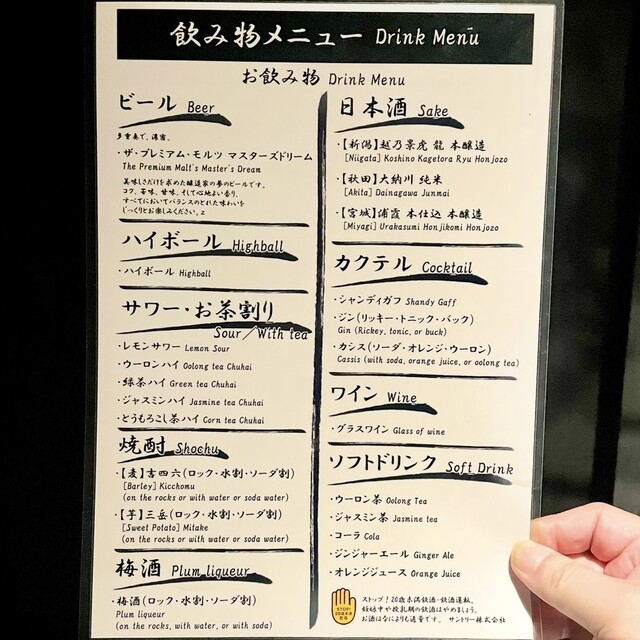 飲み物メニュー Drink Menu
お飲み物 Drink Menu
ビール Beer
多重奏で、濃密。
・ザ・プレミアム・モルツ マスターズドリーム
The Premium Malt's Master's Dream
美味しさだけを求めた醸造家の夢のビールです。
コク、苦味、甘味、そして心地よい香り、
すべてにおいてバランスのとれた味わいを
じっくりとお楽しみください。2
ハイボール Highball
・ハイボール Highball
サワー・お茶割り
Sour／With tea
・レモンサワー Lemon Sour
・ウーロンハイ Oolong tea Chuhai
・緑茶ハイ Green tea Chuhai
・ジャスミンハイ Jasmine tea Chuhai
・とうもろこし茶ハイ Corn tea Chuhai
焼酎 Shochu
・【麦】吉四六(ロック・水割・ソーダ割)
[Barley] Kicchomu
(on the rocks or with water or soda water)
・【芋】三岳(ロック・水割・ソーダ割)
[Sweet Potato] Mitake
(on the rocks or with water or soda water)
梅酒 Plum liqueur
・梅酒(ロック・水割・ソーダ割)
Plum liqueur
(on the rocks, with water, or with soda)
日本酒 Sake
・【新潟】越乃景虎 龍 本醸造
[Niigata] Koshino Kagetora Ryu Honjozo
・【秋田】大納川 純米
[Akita] Dainagawa Junmai
・【宮城】浦霞 本仕込 本醸造
[Miyagi] Urakasumi Honjikomi Honjozo
カクテル Cocktail
・シャンディガフ Shandy Gaff
・ジン(リッキー・トニック・バック)
Gin (Rickey, tonic, or buck)
・カシス(ソーダ・オレンジ・ウーロン)
Cassis (with soda, orange juice, or oolong tea)
ワイン Wine
・グラスワイン Glass of wine
ソフトドリンク Soft Drink
・ウーロン茶 Oolong Tea
・ジャスミン茶 Jasmine tea
・コーラ Cola
・ジンジャーエール Ginger Ale
・オレンジジュース Orange Juice
STOP!
20歳未満
飲酒
ストップ！20歳未満飲酒・飲酒運転。
妊娠中や授乳期の飲酒はやめましょう。
お酒はなによりも適量です。 サントリー株式会社